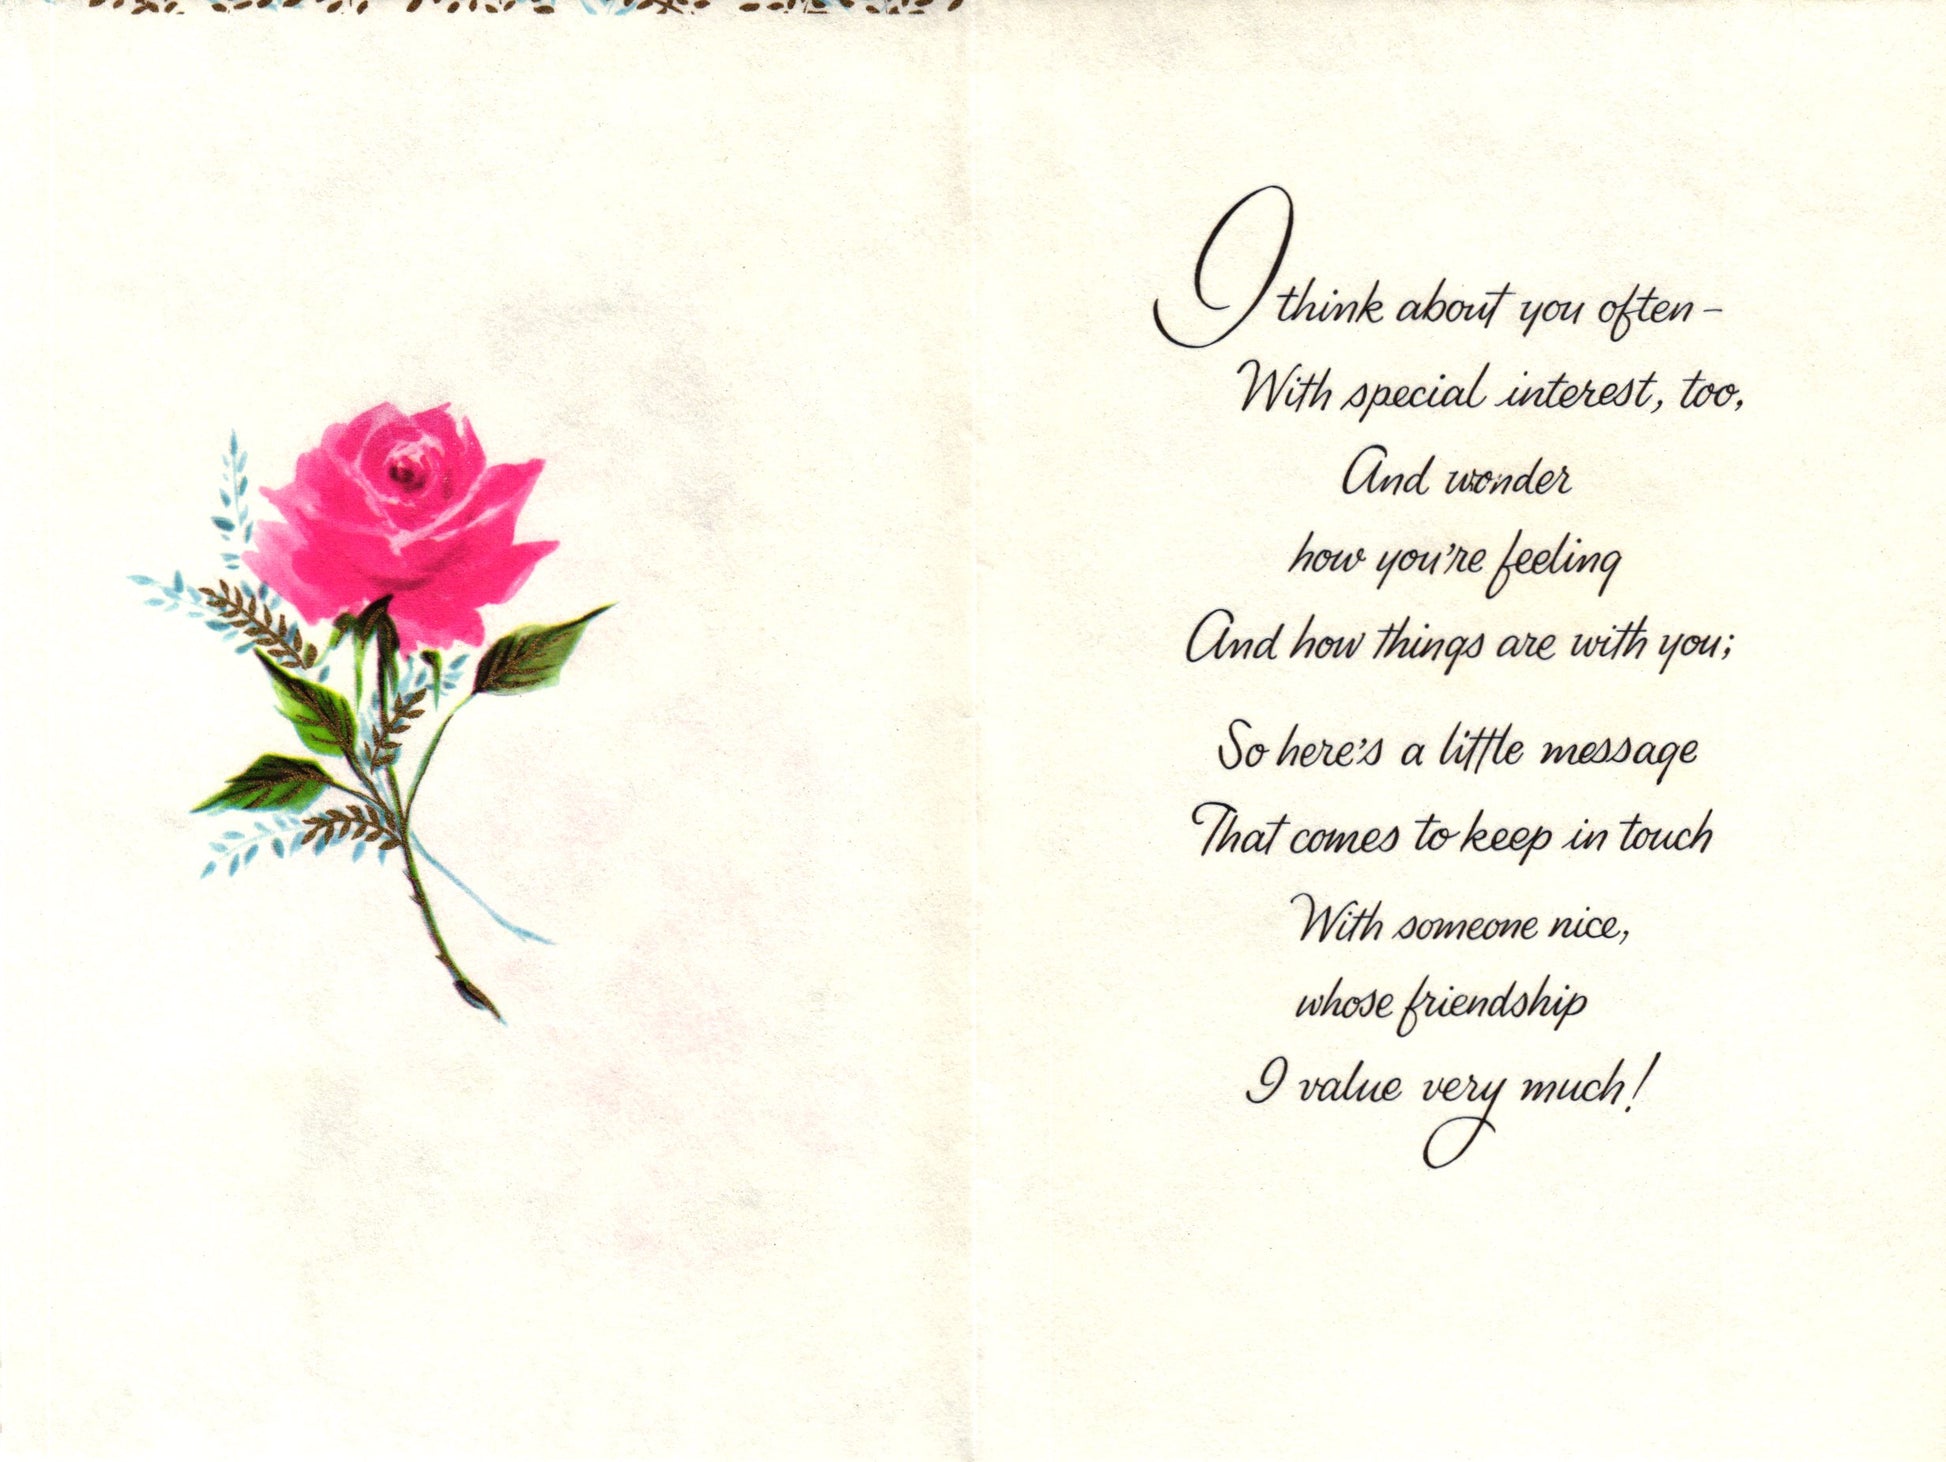 I think about you often–
With special interest, too,
And wonder
how you're feeling
And how things are with you;
So here's a little message
That comes to keep in touch
With someone nice,
whose friendship
I value very much!